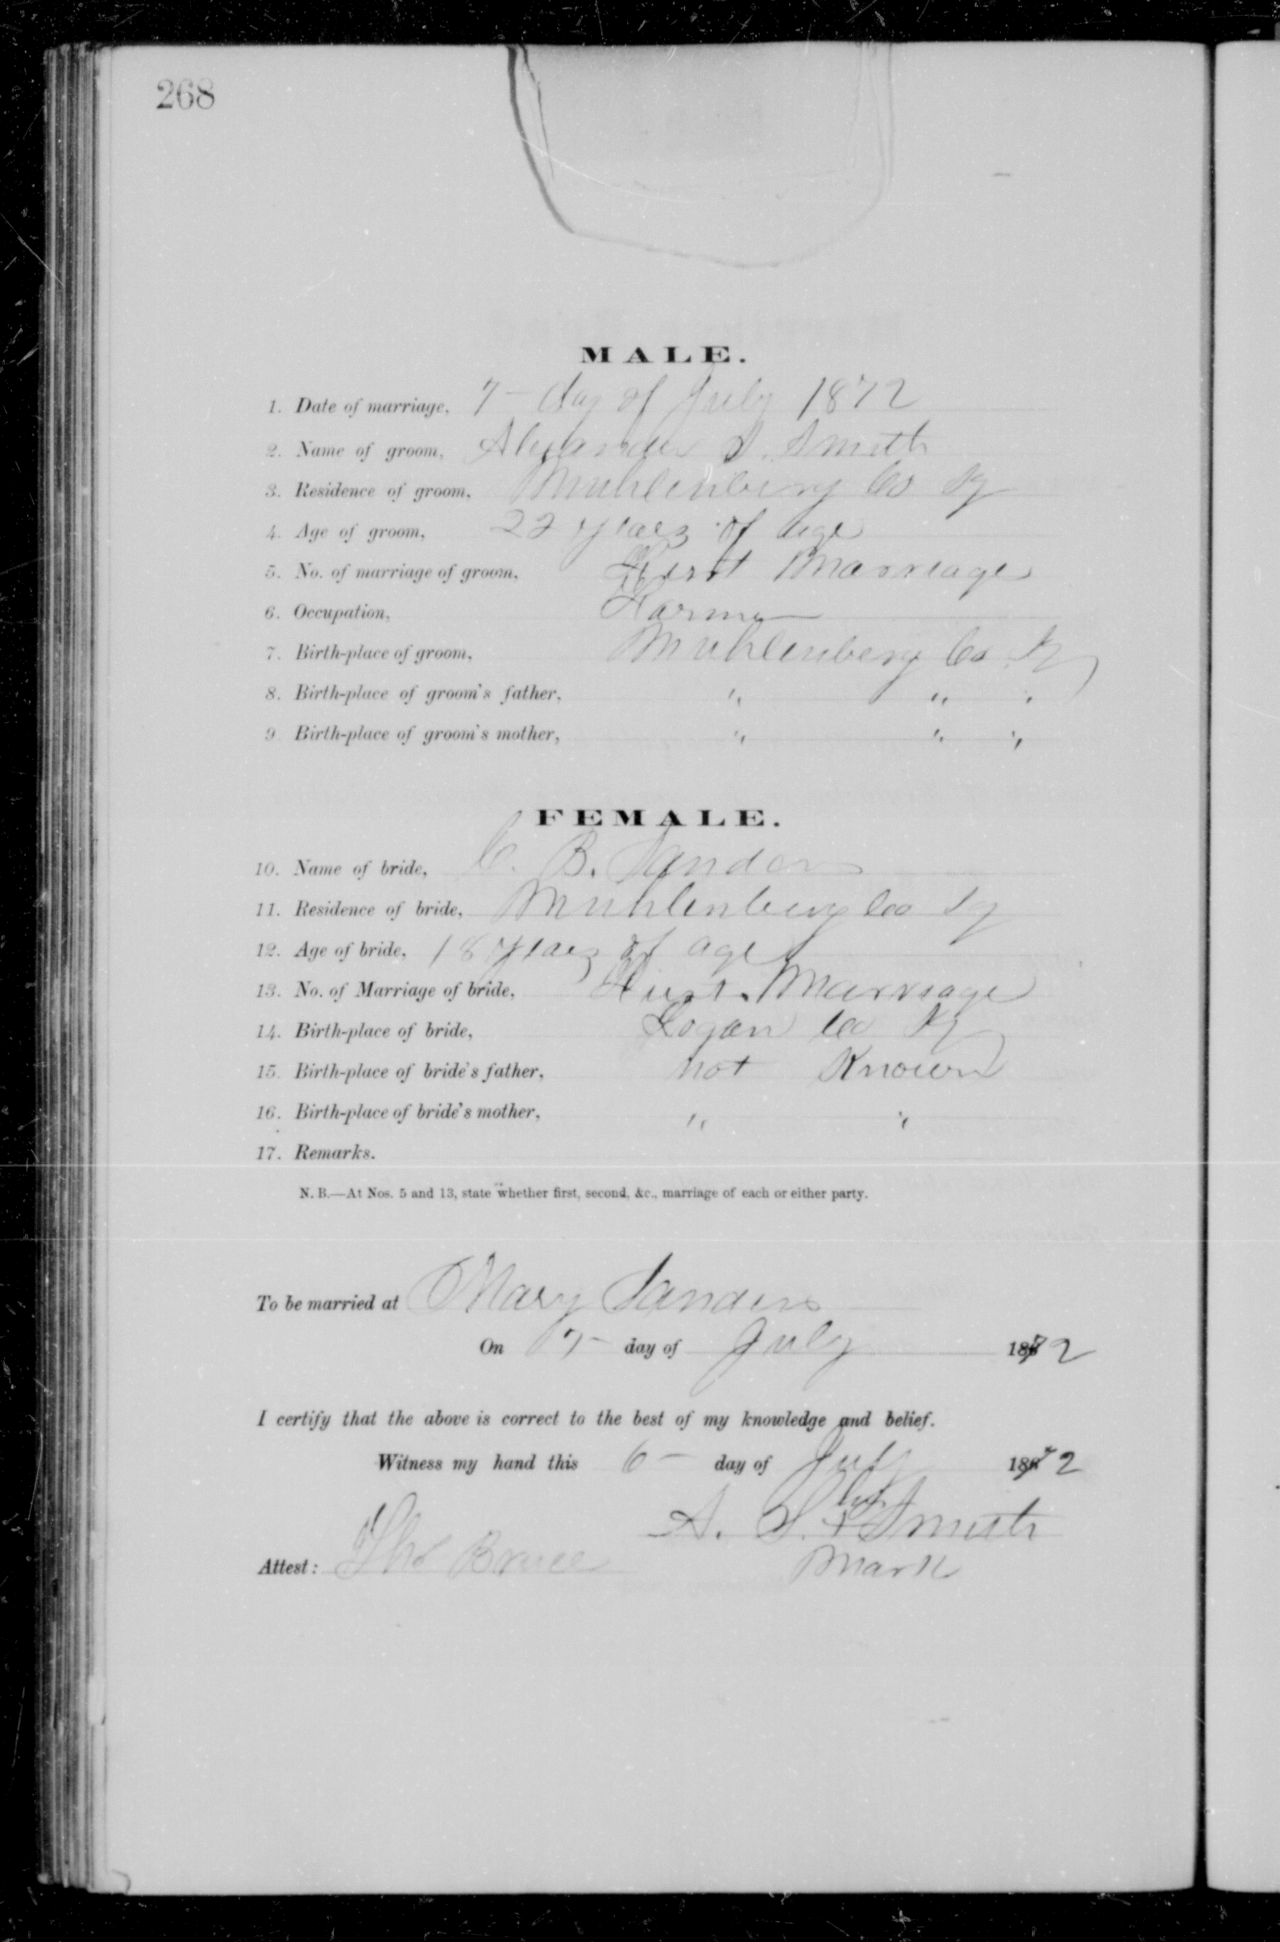 268
MALE.
1. Date of marriage, 7 - day of July 1872
2. Name of groom, Alexander S. Smith
3. Residence of groom, Muhlenberg Co Ky
4. Age of groom, 22 years of age
5. No. of marriage of groom, First Marriage
6. Occupation, Farmer
7. Birth-place of groom, Muhlenberg Co Ky
8. Birth-place of groom's father, " " "
9 Birth-place of groom's mother, " " "
FEMALE.
10. Name of bride, C. B. Sanders
11. Residence of bride, Muhlenberg Co Ky
12. Age of bride, 18 years of age
13. No. of Marriage of bride, First Marriage
14. Birth-place of bride, Logan Co Ky
15. Birth-place of bride's father, not Known
16. Birth-place of bride's mother, " "
17. Remarks.
N. B.—At Nos. 5 and 13, state whether first, second, &c., marriage of each or either party.
To be married at Mary Sanders
On 7 - day of July 1872
I certify that the above is correct to the best of my knowledge and belief.
Witness my hand this 6 - day of July 1872
his
A. S. x Smith
Attest: Tho Bruce mark